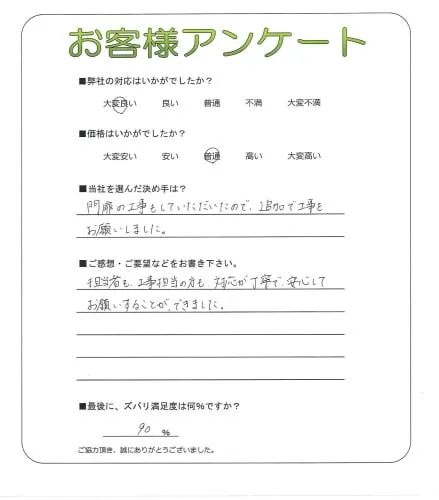 お客様アンケート
■弊社の対応はいかがでしたか？
大変良い 良い 普通 不満 大変不満
■価格はいかがでしたか？
大変安い 安い 普通 高い 大変高い
■当社を選んだ決め手は？
門扉の工事もしていただいたので、追加で工事を
お願いしました。
■ご感想・ご要望などをお書き下さい。
担当者も、工事担当の方も、対応が丁寧で、安心して
お願いすることが、できました。
■最後に、ズバリ満足度は何％ですか？
90 ％
ご協力頂き、誠にありがとうございました。